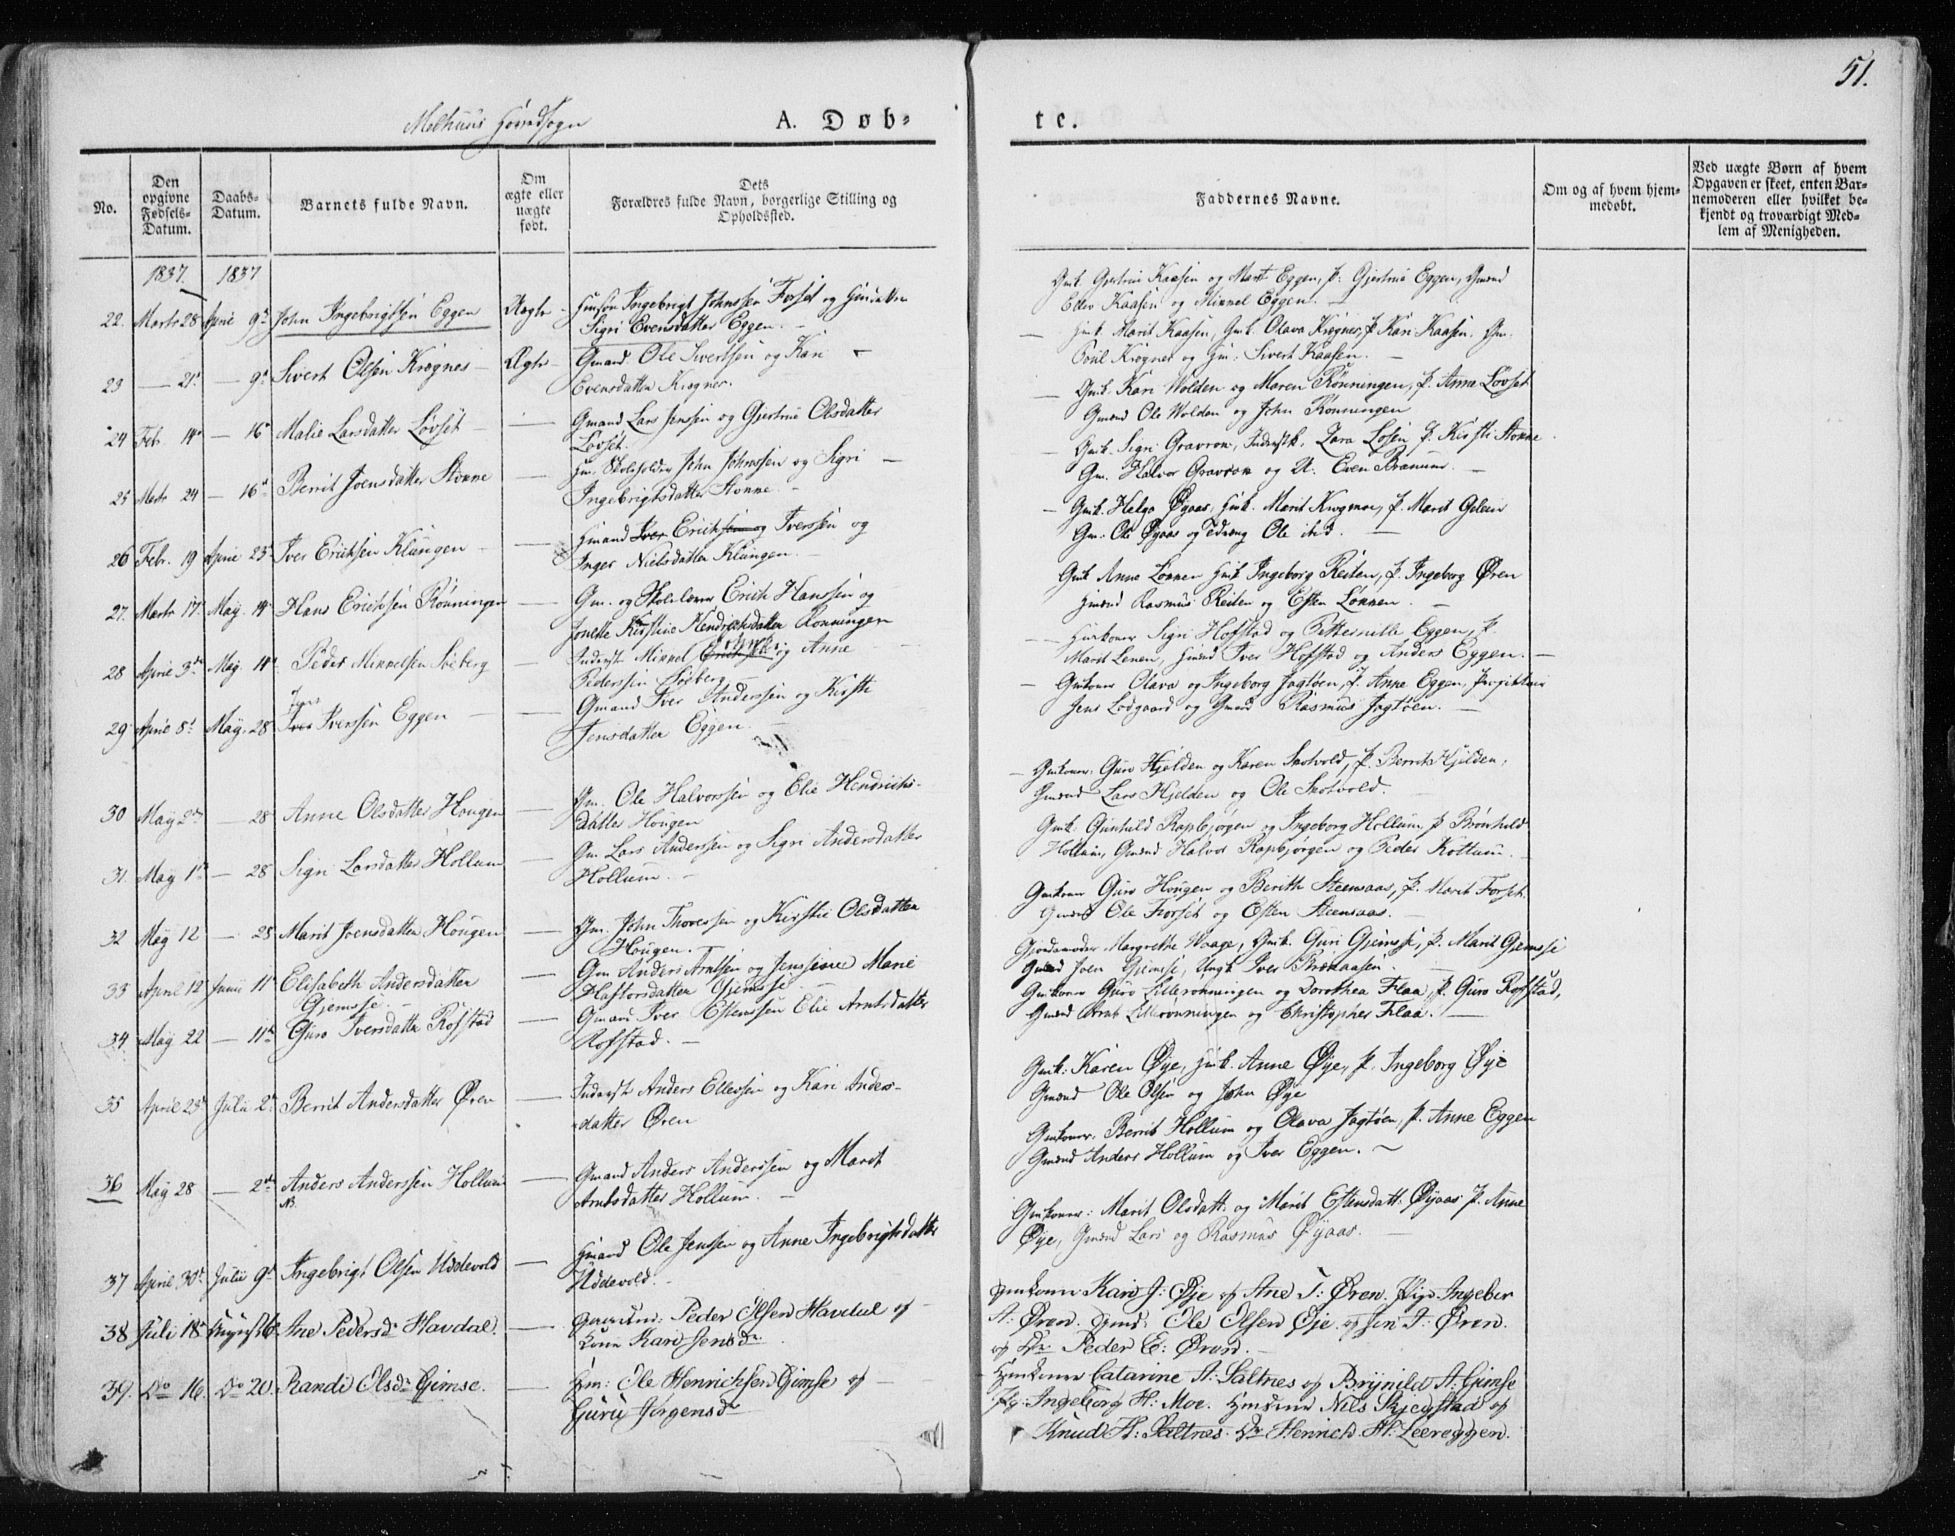 51.
Melhuus Hovedsogn
A. Døb-
te.
No.
Den opgivne Fødsels-Datum.
Daabs-Datum.
Barnets fulde Navn.
Om ægte eller uægte født.
Dets Forældres fulde Navn, borgerlige Stilling og Opholdsted.
Faddernes Navne.
Om og af hvem hjem-medøbt.
Ved uægte Børn af hvem Opgaven er skeet, enten Bar-nemoderen eller hvilket be-kjendt og troværdigt Med-lem af Menigheden.
1837. 1837
22. Marts 28 April 9de John Ingebrigtsen Eggen Uægte Ingebrigt Johnssen Forset og
Sigri Evensdatter Eggen.
Kaasen og Marit Eggen, P. Gjertrue Eggen, Gmænd
Kaasen og Mikkel Eggen.
23 — 21 — 9de Sivert Olsen Krognes Ægte Gmand Ole Sivertsen og Kari
Evensdatter Krognes.
Marit Kaasen, Gmk. Olava Krognes, P. Kari Kaasen. Gm.
Krognes og Sivert Kaasen.
24 Feb. 14 — 16 Malie Larsdatter Løvset — Gmand Lars Jensen og Gjertrue Olsdatter
Løvset.
Gmk. Kari Wolden og Maren Rønningen, P. Anne Løvset
Gmænd Ole Wolden og John Rønningen
25 Marts 24 — 16 Berrit Joensdatter Stonne — Skoleholder John Johnssen og Sigri
Ingebrigtsdatter Stonne.
Gmk. Sigri Gravrok, P. Kirsti Stonne
Gm. Halvor Gravrok og Even
26 Febr. 19 April 23 Iver Erichsen Klungen — Gmand Iver Erichsen og Iverssen og
Inger Nielsdatter Klungen.
Gmk. Helga Øyaas, Marit P. Marit
Gm. Ole Øyaas og Ole ibid.
27. Marts 17 May 14 Hans Erichsen Rønningen — Gm. og Skolelærer Erich Hanssen og
Jonette Kirstine Hendrichsdatter Rønningen
Gmk Anne Lønnen Ingeborg Reiten, P. Ingeborg Øren
Rasmus Reiten og Esten Lønnen.
28 April 3de May 14 Peder Mikkelsen Søeberg — Inderst Mikkel og Anne
Pederssen Søeberg
Sigri Hofstad og Petternille Eggen, P.
Marit Iver Hofstad og Anders Eggen.
29 April 8 May 28 Jens Iver Iverssen Eggen — Gmand Iver Anderssen og Kirsti
Jensdatter Eggen
Gmkoner Olava og Ingeborg Jagtøen, P. Anne Eggen,
Jens Lodgaard og Gmand Rasmus Jagtøen.
30 May 2 — 28 Anne Olsdatter Hougen — Gm. Ole Halvorssen og Elie Hendrichs-
datter Hougen
Gmkoner: Guro Hjelden og Karen Skotvold, P. Berrit Hjelden,
Gmænd Lars Hjelden og Ole Skotvold.
31. May 1 — 28 Sigri Larsdatter Hollum — Gm. Lars Anderssen og Sigri Andersdatter
Hollum.
Gmk. Gunhild Rapbjørgen og Ingeborg Hollum P. Brønhild
Hollum, Gmænd Halvor Rapbjørgen og Peder
32 May 12 — 28 Marit Joensdatter Hougen — Gm. John Thoressen og Kirstie Olsdatter
Hougen.
Gmkoner Guro Hougen og Berith Steensaas, P. Marit Forset
Gmænd Ole Forset og Esten Steensaas.
33 April 12 Junii 11 Elisabeth Andersdatter
Gjemsse. — Gm Anders Arntsen og Jenssine Marie
Haftorsdatter Gjemsse
Gjordemoder Margrethe Waage, Gmk. Guri Gjemsse, P. Marit Gjemsse
Gmænd Joen Gjemsse, Ungk. Iver
34 May 22 — 11 Guro Iversdatter Rofstad — Gmand Iver Estenssen Elie Arntsdatter
Rofstad.
Gmkoner Guro Lillerønningen og Dorothea Flaa, P. Guro Rofstad,
Gmænd Arnt Lillerønningen og Christopher Flaa.
35 April 23 Julii 2 Berrit Andersdatter Øren — Inderst Anders Ellevsen og Kari Anders-
datter Øren
Gmk: Karen Øye, Anne Øye, P. Ingeborg Øye
Gmænd Ole Olsen og John Øye
36 May 28 — 2 Anders Anderssen Hollum — Gmand Anders Anderssen og Marit
Arntsdatter Hollum.
Gmkoner: Berrit Hollum og Olava Jagtøen, P. Anne Eggen
Gmænd Anders Hollum og Iver Eggen.
37 April 30 Julii 9 Ingebrigt Olsen Uddevold — Ole Jenssen og Anne Ingebrigtsdatter
Uddevold.
Gmkoner: Marit Olsdatt. og Marit Estensdatt. Øyaas P. Anne
Øye, Gmænd Lars og Rasmus Øyaas.
38 Juli 18 August 6 Ane Pedersdr Havdal. — Peder Olsen Havdal og
Kone Kari Jensdr
Kari J: Øje og Ane T: Øren. Pige Ingeber
A: Øren. Ole Olsen Øje og Jen T. Øren.
og Peder E: Øren.
39. Do 16 Do 20 Randi Olsdr Gimse. — Hm: Ole Henrichsen Gimse og
Guru Jørgensdr
Catarine A: Saltnes og Brynild A: Gimse
Pig. Ingeborg H: Moe. Nils Skjegstad og
Knud H: Saltnes. Henrich H: Leereggen.